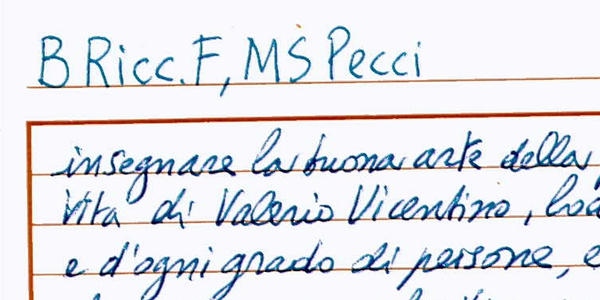 B Ricc. F, MS Pecci
insegnare la buona arte della
vita di Valerio Vicentino,
e d'ogni grado di persone, e